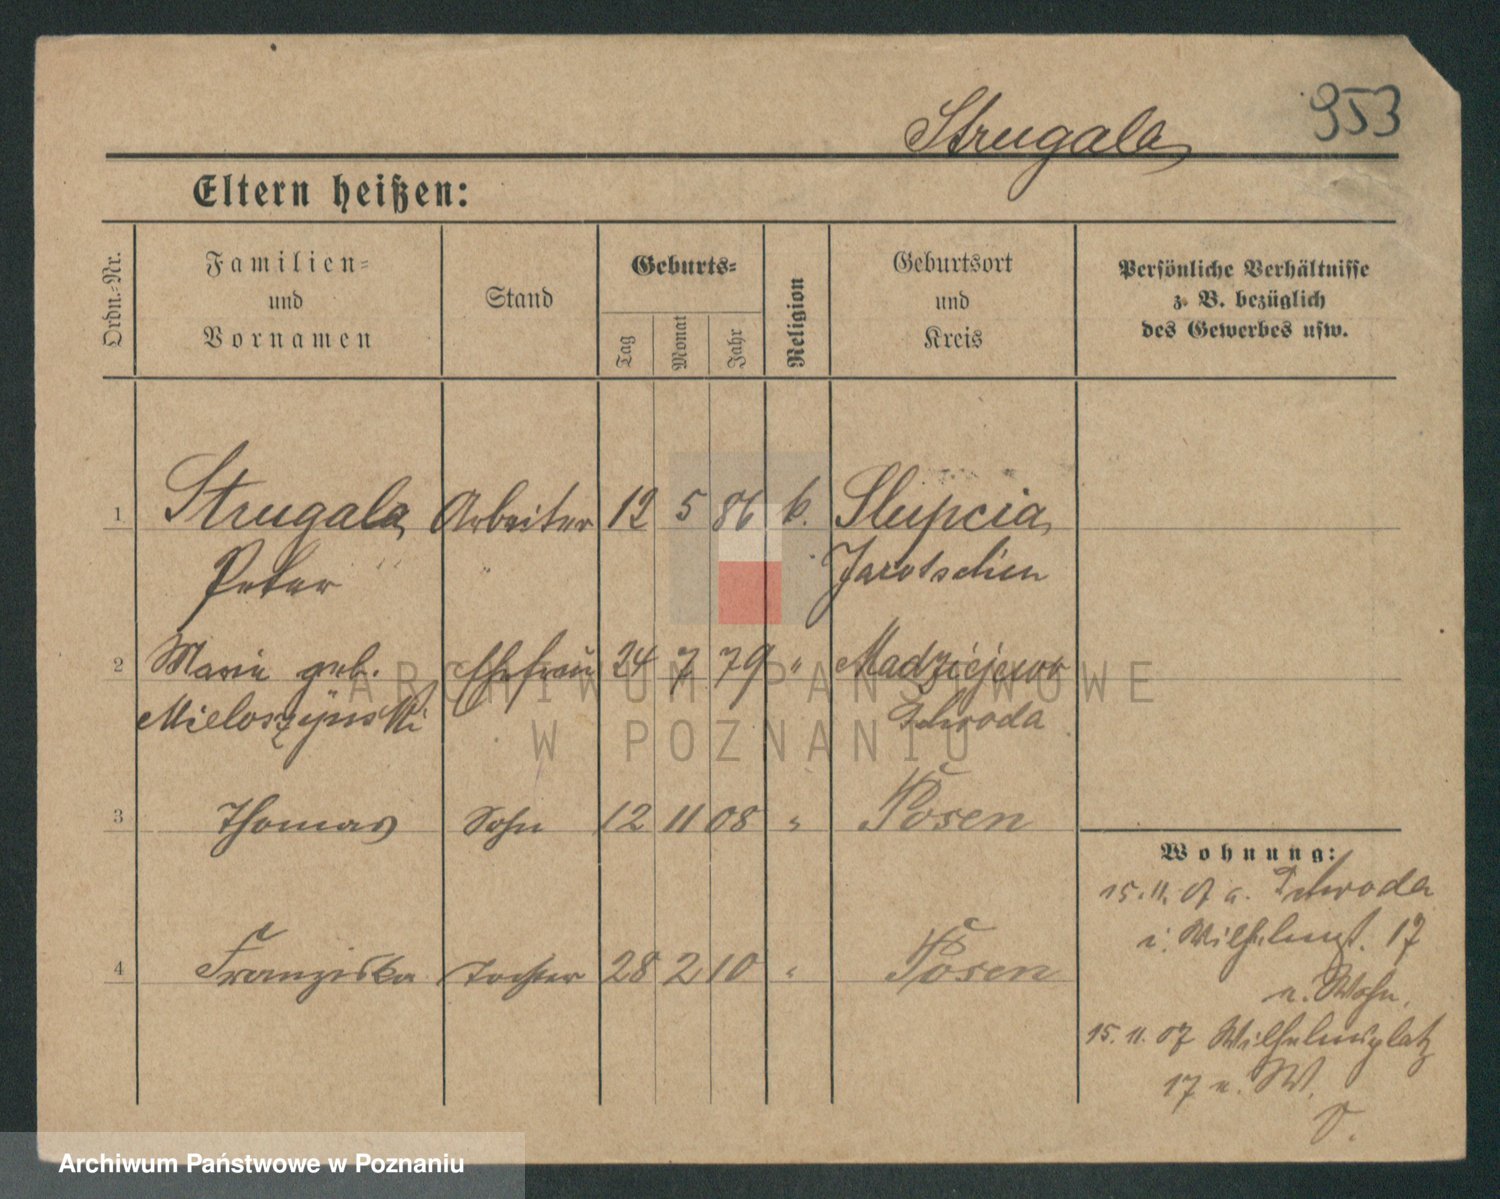 953
Strugala
Eltern heißen:
Ordn.-Nr.
Familien-
und
Vornamen
Stand
Geburts-
Tag
Monat
Jahr
Religion
Geburtsort
und
Kreis
Persönliche Verhältnisse
z. B. bezüglich
des Gewerbes usw.
1 Strugala Arbeiter 12 5 86 k. Slupcia
Peter Jarotschin
2 Marie geb. Ehefrau 24 7 79 " Madziejewo
Mieloszynski Schroda
3 Thomas Sohn 12 11 08 " Posen
4 Franziska Tochter 28 2 10 " Posen
Wohnung:
15.11.07 a. Schroda
i. Wilhelmpl. 17
n. Wohn.
15.11.07 Wilhelmsplatz
17 n. W.
ARCHIWUM PAŃSTWOWE
W POZNANIU
Archiwum Państwowe w Poznaniu